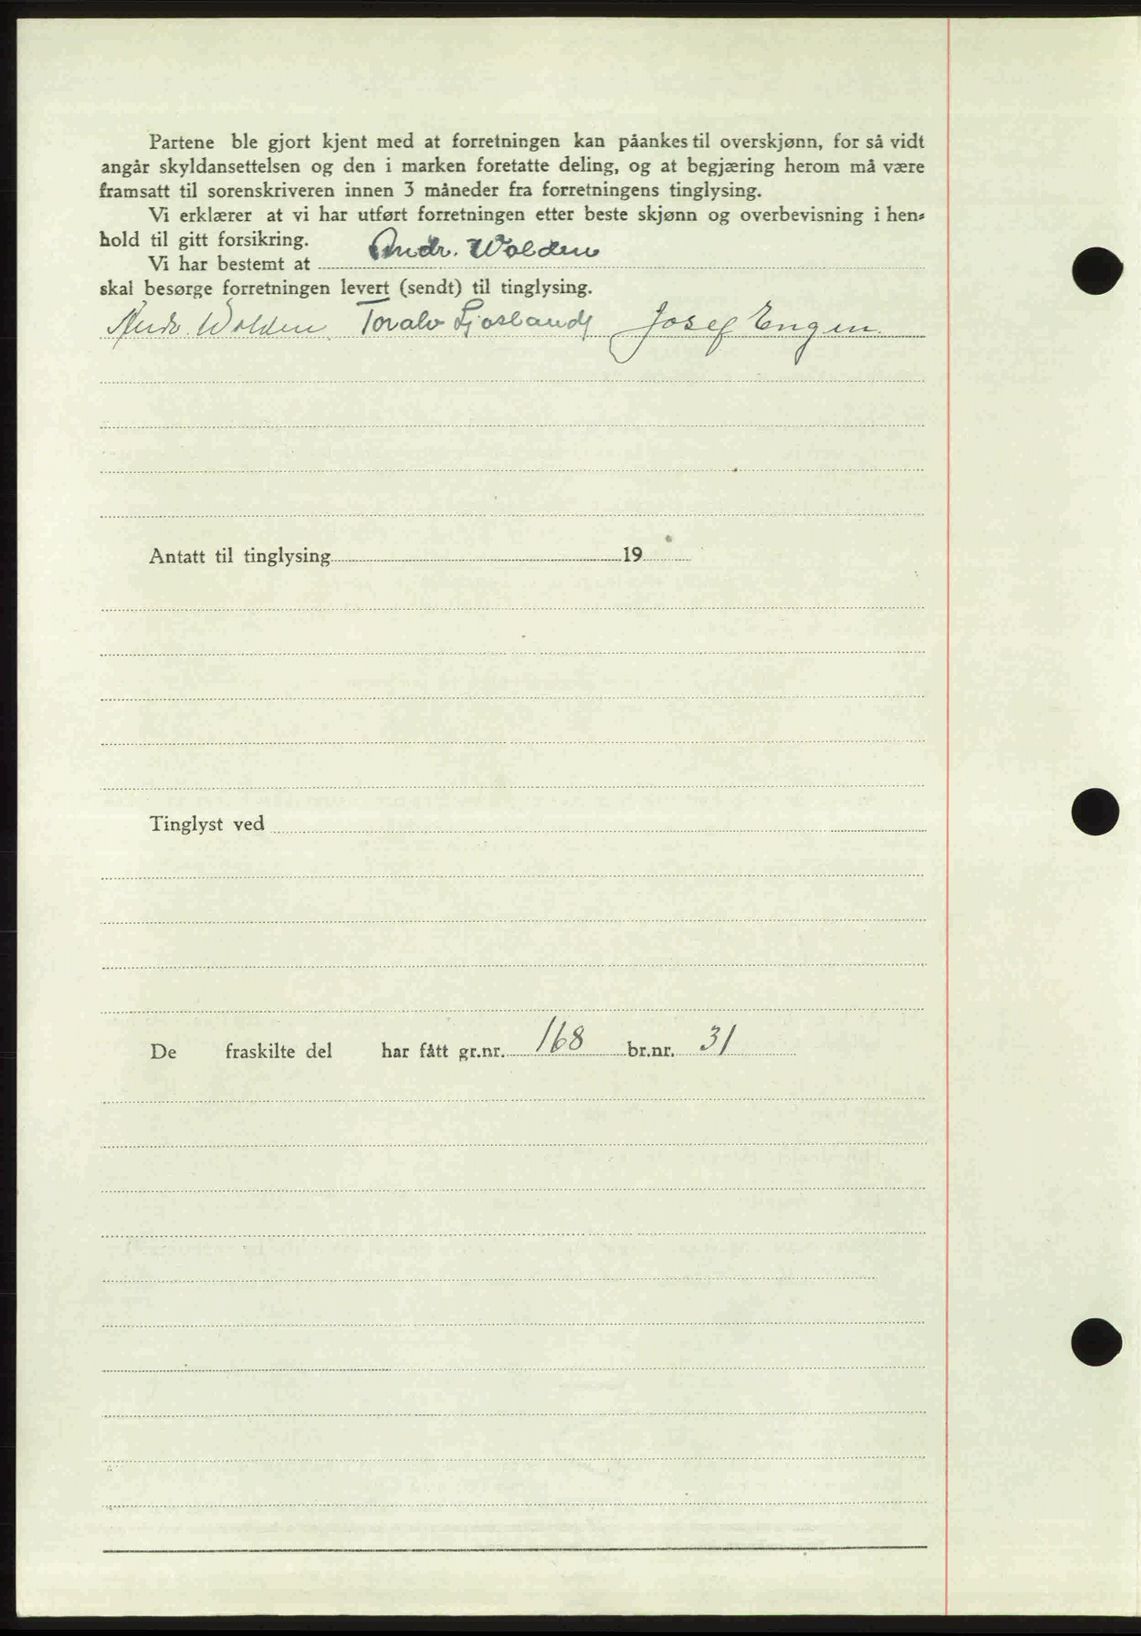 Partene ble gjort kjent med at forretningen kan påankes til overskjønn, for så vidt
angår skyldansettelsen og den i marken foretatte deling, og at begjæring herom må være
framsatt til sorenskriveren innen 3 måneder fra forretningens tinglysing.
Vi erklærer at vi har utført forretningen etter beste skjønn og overbevisning i hen-
hold til gitt forsikring.
Vi har bestemt at Andr. Wolden
skal besørge forretningen levert (sendt) til tinglysing.
Andr. Wolden. Toralv Fjosland Josef Engen.
Antatt til tinglysing 19
Tinglyst ved
De fraskilte del har fått gr.nr. 168 br.nr. 31